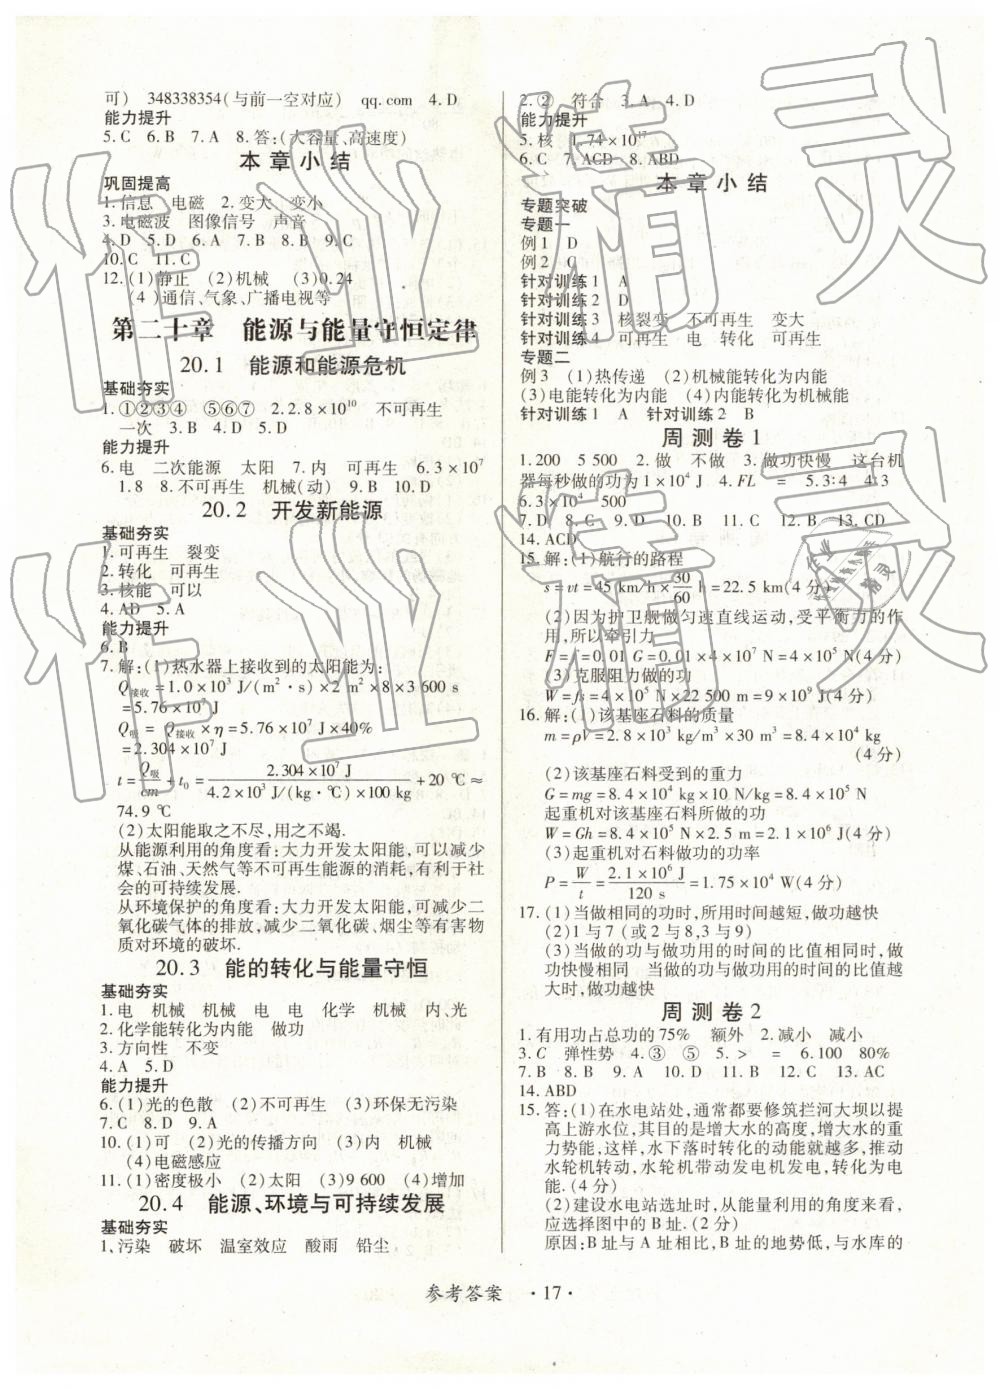 可)　348338354(与前一空对应)　qq.com　4. D
能力提升
5. C　6. B　7. A　8. 答:(大容量、高速度)
本 章 小 结
巩固提高
1. 信息　电磁　2. 变大　变小
3. 电磁波　图像信号　声音
4. D　5. D　6. A　7. B　8. B　9. C
10. C　11. C
12. (1)静止　(2)机械　(3)0.24
(4)通信、气象、广播电视等
第二十章　能源与能量守恒定律
20.1　能源和能源危机
基础夯实
1. ①②③④　⑤⑥⑦　2. 2.8×10¹⁰　不可再生
一次　3. B　4. D　5. D
能力提升
6. 电　二次能源　太阳　7. 内　可再生　6.3×10⁷
1.8　8. 不可再生　机械(动)　9. B　10. D
20.2　开发新能源
基础夯实
1. 可再生　裂变
2. 转化　可再生
3. 核能　可以
4. AD　5. A
能力提升
6. B
7. 解:(1)热水器上接收到的太阳能为:
Q接收=1.0×10³ J/(m²·s)×2 m²×8×3 600 s
=5.76×10⁷ J
Q吸 = Q接收×η=5.76×10⁷ J×40%
=2.304×10⁷ J
t=Q吸/cm+t₀=2.304×10⁷ J/4.2×10³ J/(kg·℃)×100 kg+20 ℃≈
74.9 ℃
(2)太阳能取之不尽,用之不竭.
从能源利用的角度看:大力开发太阳能,可以减少
煤、石油、天然气等不可再生能源的消耗,有利于社
会的可持续发展.
从环境保护的角度看:大力开发太阳能,可减少二
氧化碳气体的排放,减少二氧化碳、烟尘等有害物
质对环境的破坏.
20.3　能的转化与能量守恒
基础夯实
1. 电　机械　机械　电　电　化学　机械　内、光
2. 化学能转化为内能　做功
3. 方向性　不变
4. A　5. D
能力提升
6. (1)光的色散　(2)不可再生　(3)环保无污染
7. C　8. D　9. A
10. (1)可　(2)光的传播方向　(3)内　机械
(4)电磁感应
11. (1)密度极小　(2)太阳　(3)9 600　(4)增加
20.4　能源、环境与可持续发展
基础夯实
1. 污染　破坏　温室效应　酸雨　铅尘
2. ②　符合　3. A　4. D
能力提升
5. 核　1.74×10¹⁷
6. C　7. ACD　8. ABD
本 章 小 结
专题突破
专题一
例 1　D
例 2　C
针对训练 1　A
针对训练 2　D
针对训练 3　核裂变　不可再生　变大
针对训练 4　可再生　电　转化　可再生
专题二
例 3　(1)热传递　(2)机械能转化为内能
(3)电能转化为内能　(4)内能转化为机械能
针对训练 1　A　针对训练 2　B
周 测 卷 1
1. 200　5 500　2. 做　不做　3. 做功快慢　这台机
器每秒做的功为1×10⁴ J　4. FL　=　5. 3∶4　4∶3
6. 3×10⁴　500
7. D　8. C　9. D　10. B　11. C　12. B　13. CD
14. ACD
15. 解:(1)航行的路程
s=vt=45 km/h×30/60 h=22.5 km(4 分)
(2)因为护卫舰做匀速直线运动,受平衡力的作
用,所以牵引力
F=f=0.01 G=0.01×4×10⁷ N=4×10⁵ N(4分)
(3)克服阻力做的功
W=fs=4×10⁵ N×22 500 m=9×10⁹ J(4分)
16. 解:(1)该基座石料的质量
m=ρV=2.8×10³ kg/m³×30 m³=8.4×10⁴ kg
(4 分)
(2)该基座石料受到的重力
G=mg=8.4×10⁴ kg×10 N/kg=8.4×10⁵ N
起重机对该基座石料所做的功
W=Gh=8.4×10⁵ N×2.5 m=2.1×10⁶ J(4分)
(3)起重机对石料做功的功率
P=W/t=2.1×10⁶ J/120 s=1.75×10⁴ W(4分)
17. (1)当做相同的功时,所用时间越短,做功越快
(2)1与7 (或2与8,3与9)
(3)当做的功与做功用的时间的比值相同时,做
功快慢相同　当做的功与做功用的时间的比值越
大时,做功越快
周 测 卷 2
1. 有用功占总功的75%　额外　2. 减小　减小
3. C　弹性势　4. ③　⑤　5. >　=　6. 100　80%
7. B　8. B　9. A　10. D　11. B　12. C　13. AC
14. ABD
15. 答:(1)在水电站处,通常都要修筑拦河大坝以提
高上游水位,其目的是增大水的高度,增大水的重
力势能,这样,水下落时转化的动能就越多,推动
水轮机转动,水轮机带动发电机发电,转化为电
能.(4 分)
(2)建设水电站选址时,从能量利用的角度来看,
应选择图中的 B 址.(2 分)
原因:B 址与 A 址相比,B 址的地势低,与水库的
参考答案　·17·
作业精灵